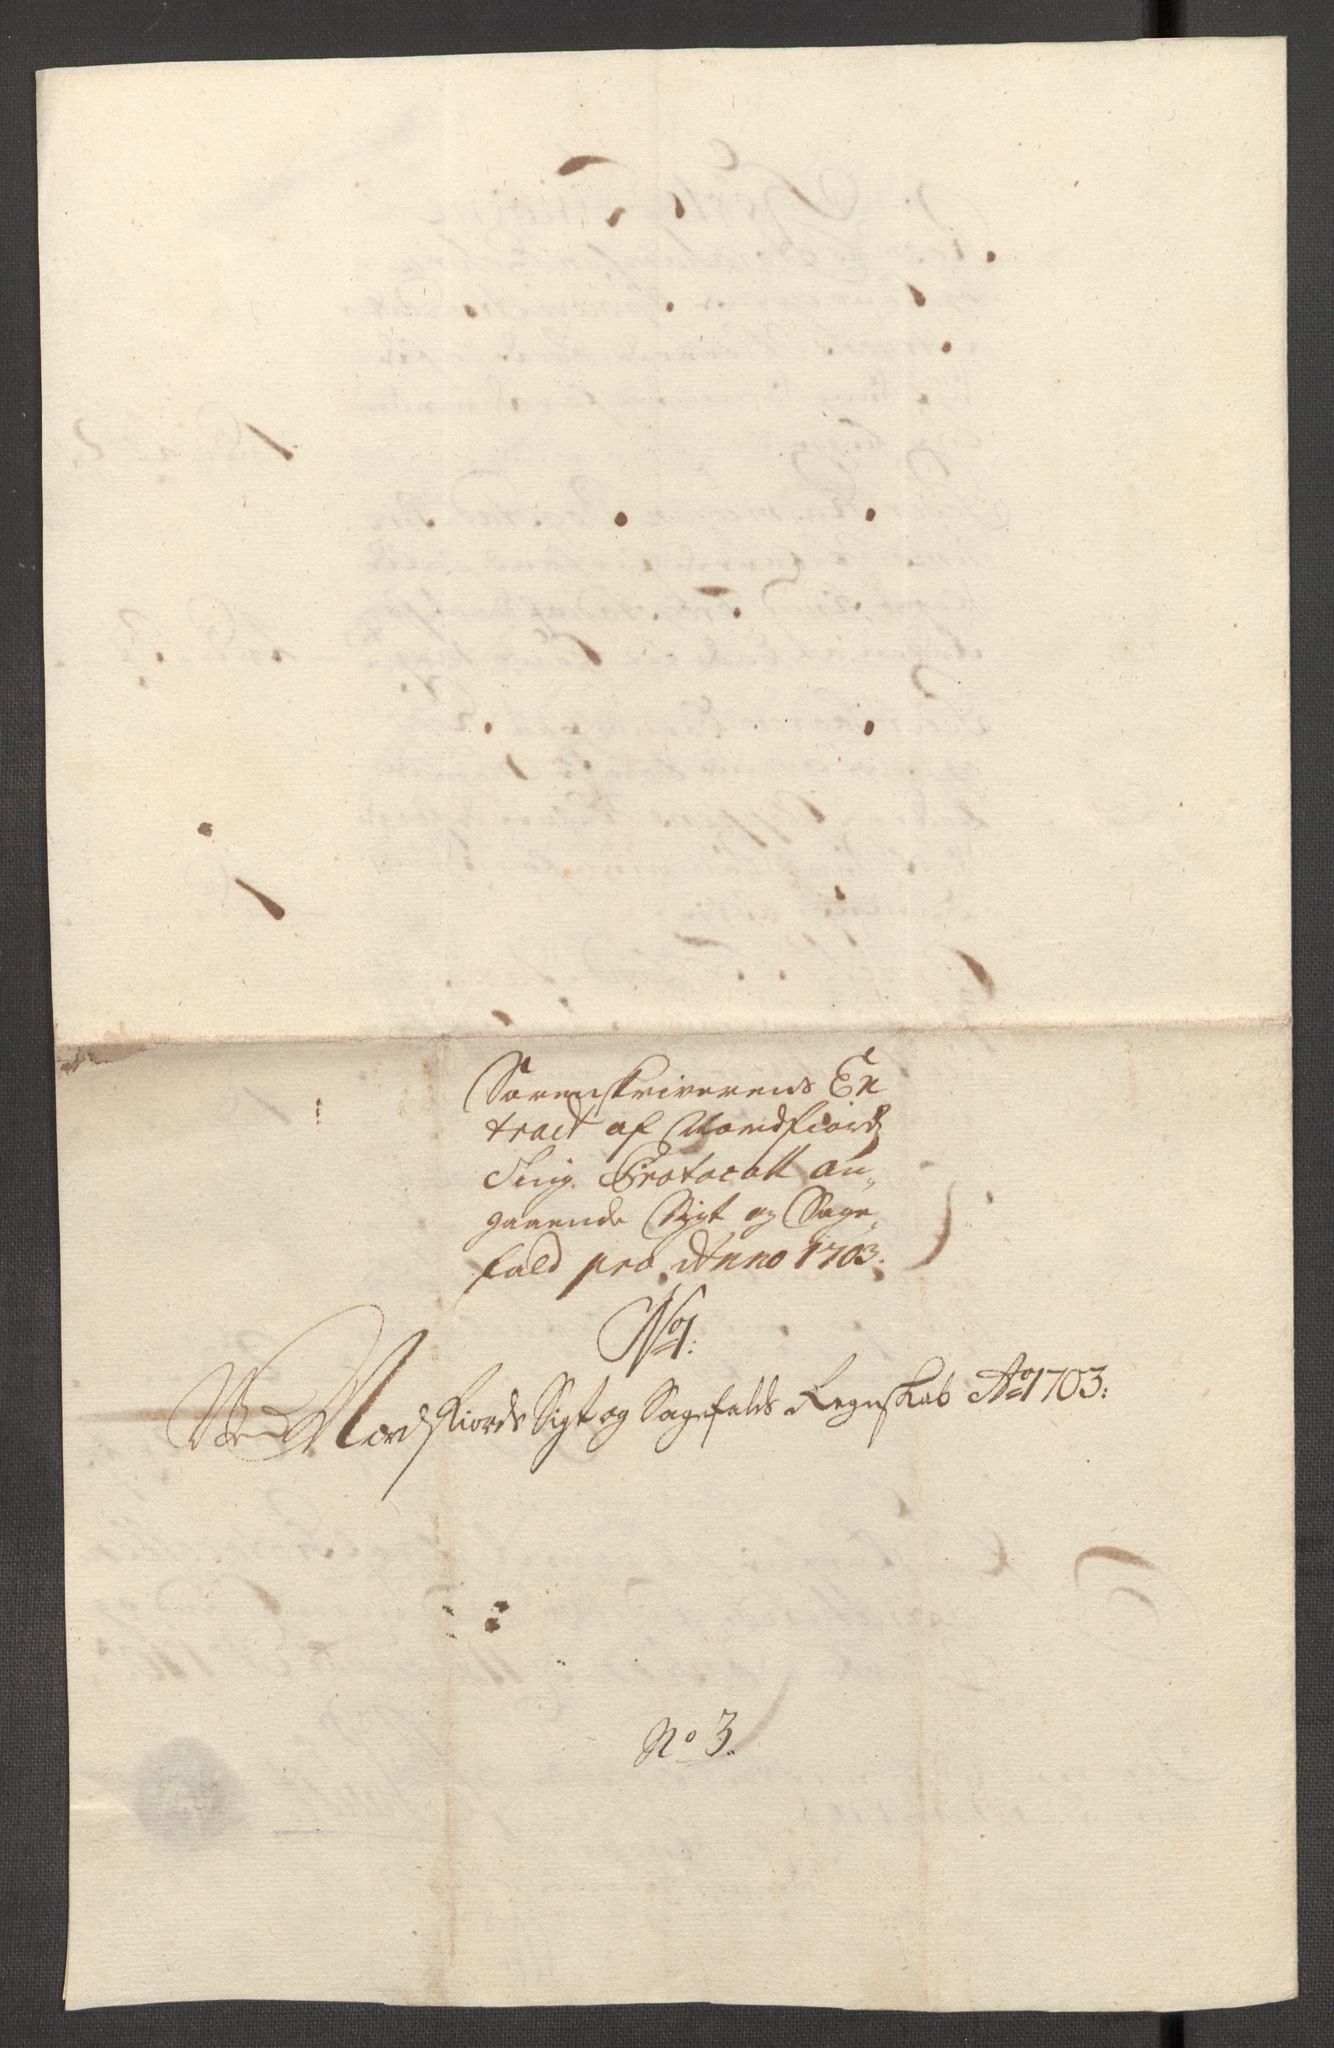 Sorenskriverens Ex
tract af Nordfiords
Ting Protocoll an„
gaaende Sigt og Sage„
fald pro Anno 1703.
No 1.
Ved Nordfiords Sigt og Sagefalds Regnskab Ao 1703:
No 3.